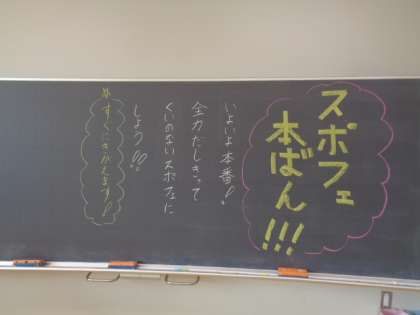 スポフェ
本ばん!!!
いよいよ本番!
全力だしきって
くいのないスポフェに
しよう!!
※すぐにきがえます!